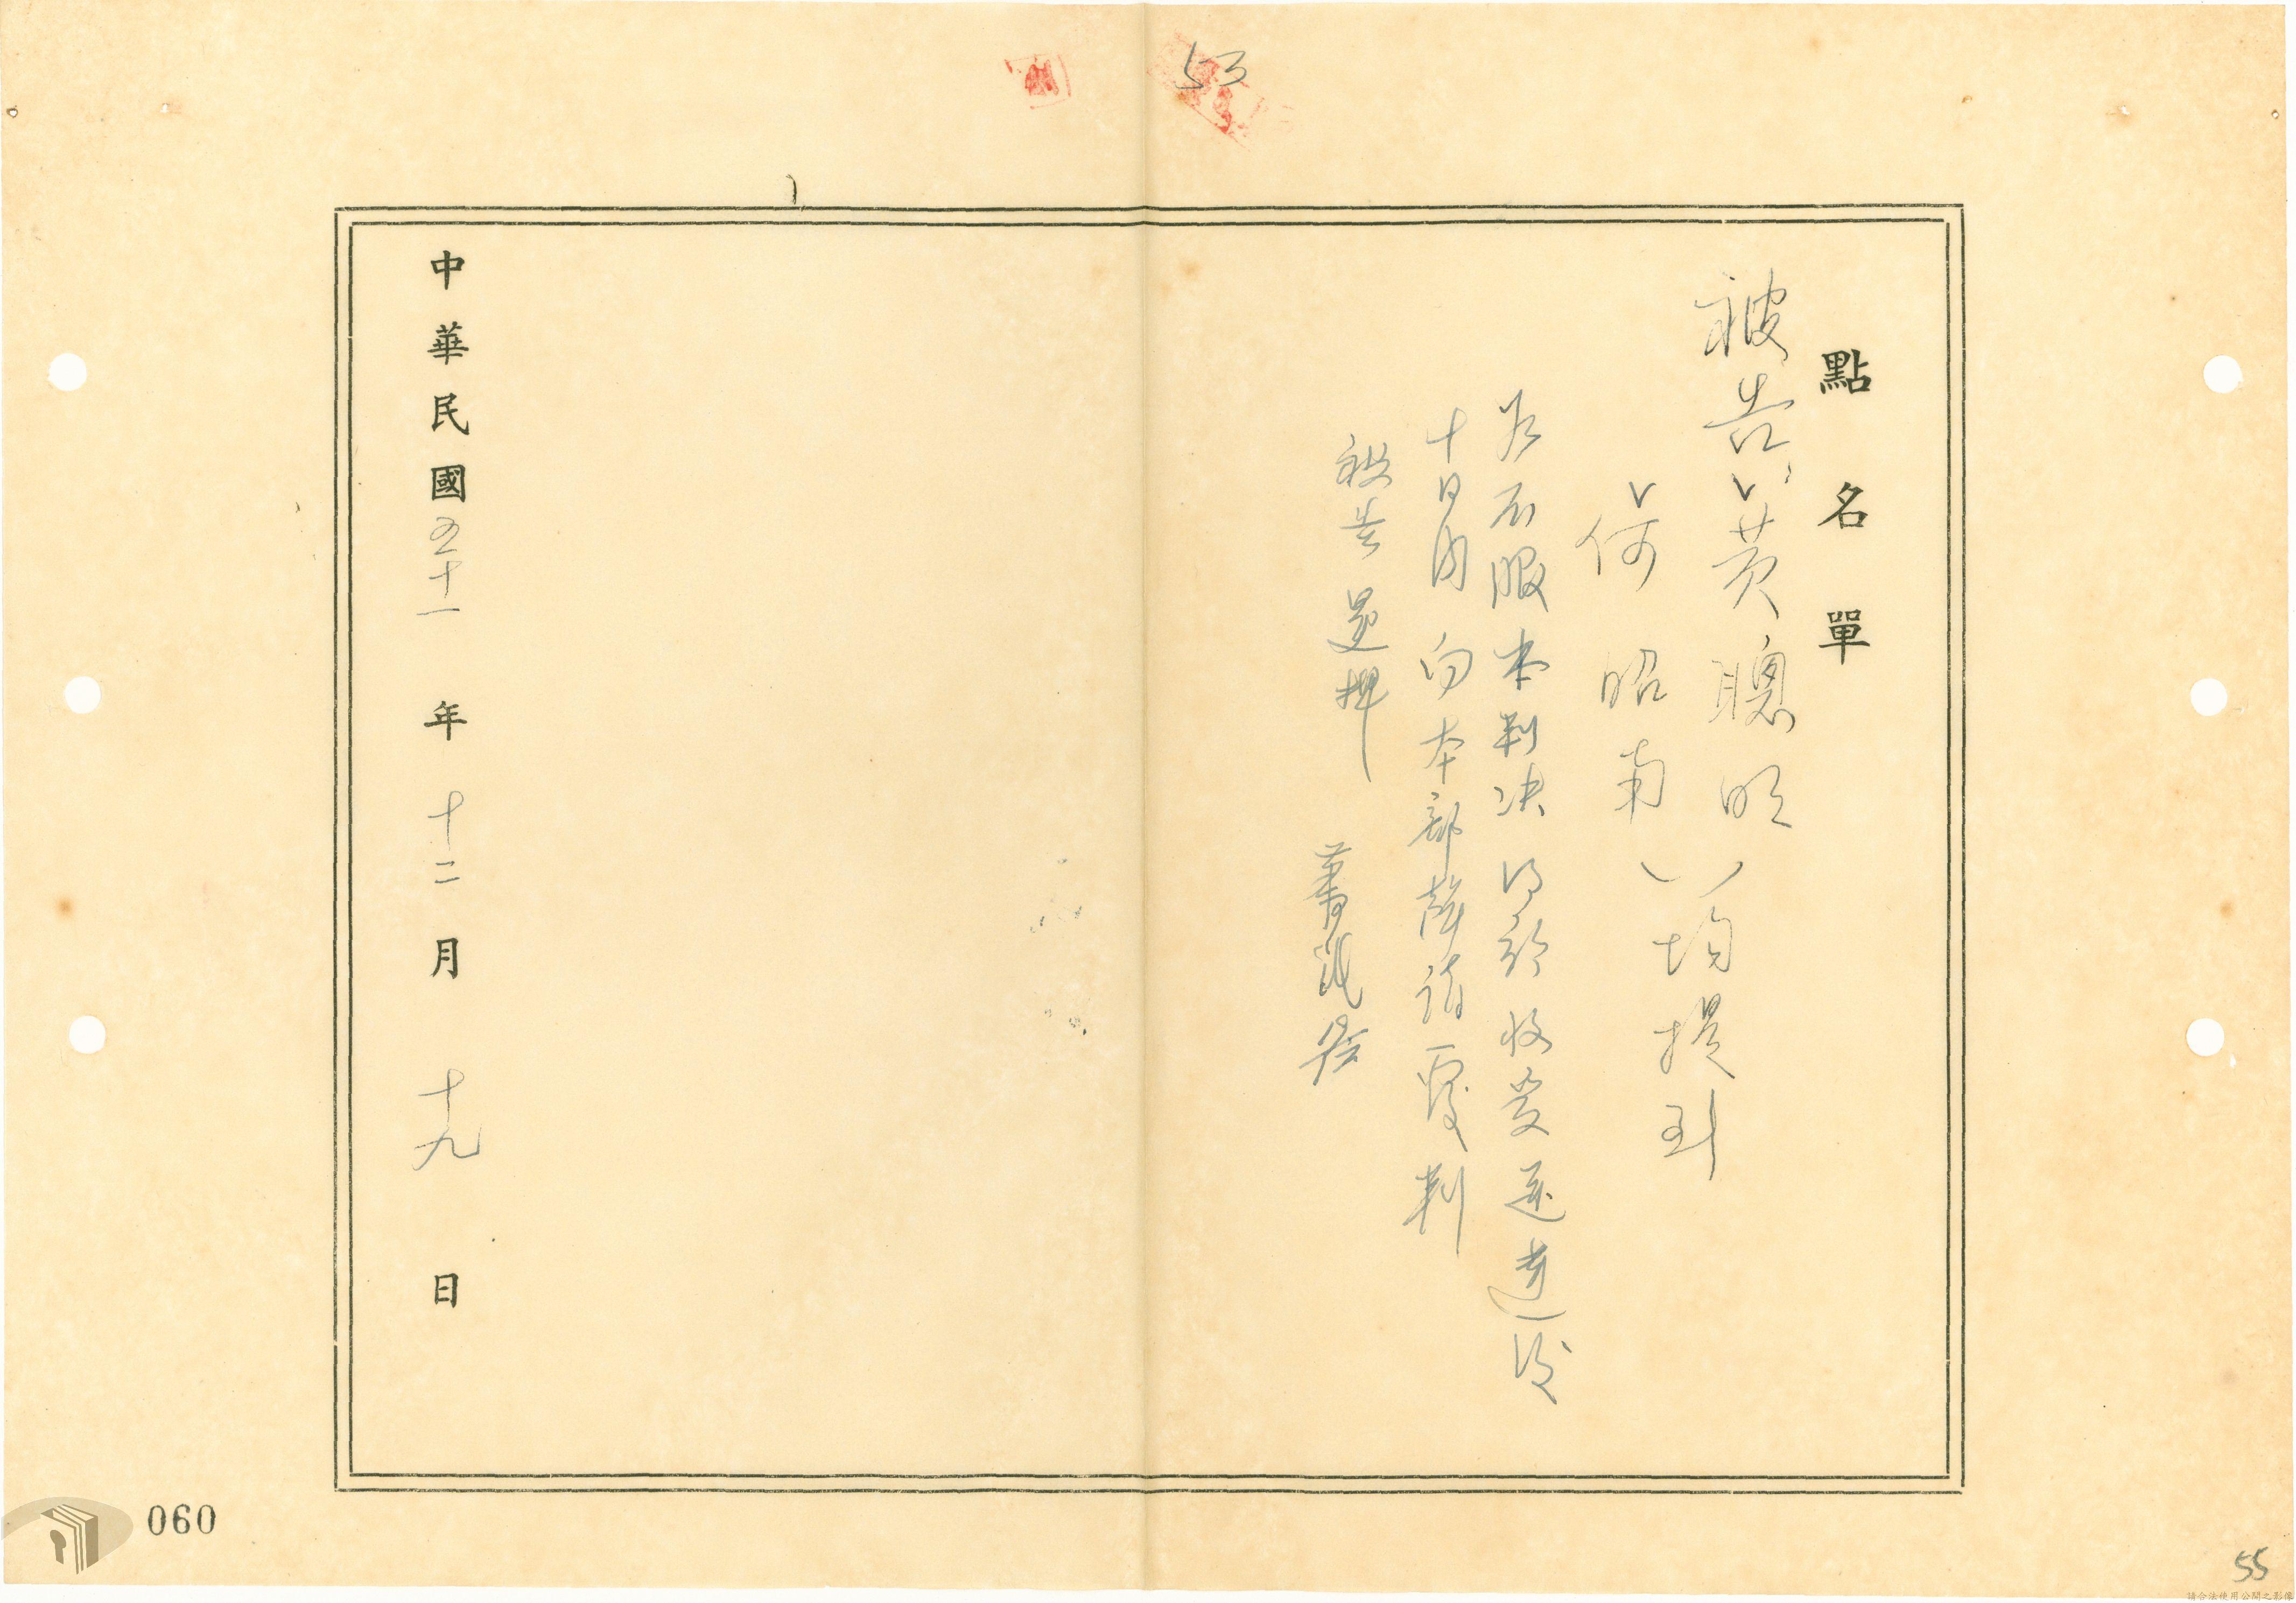 53
點名單
被告 黃聰明
何昭南
均提到
如不服本判決得於收受送達後
十日內向本部聲請覆判
被告還押
中華民國五十一年十二月十九日
060
55
請合法使用公開之影像